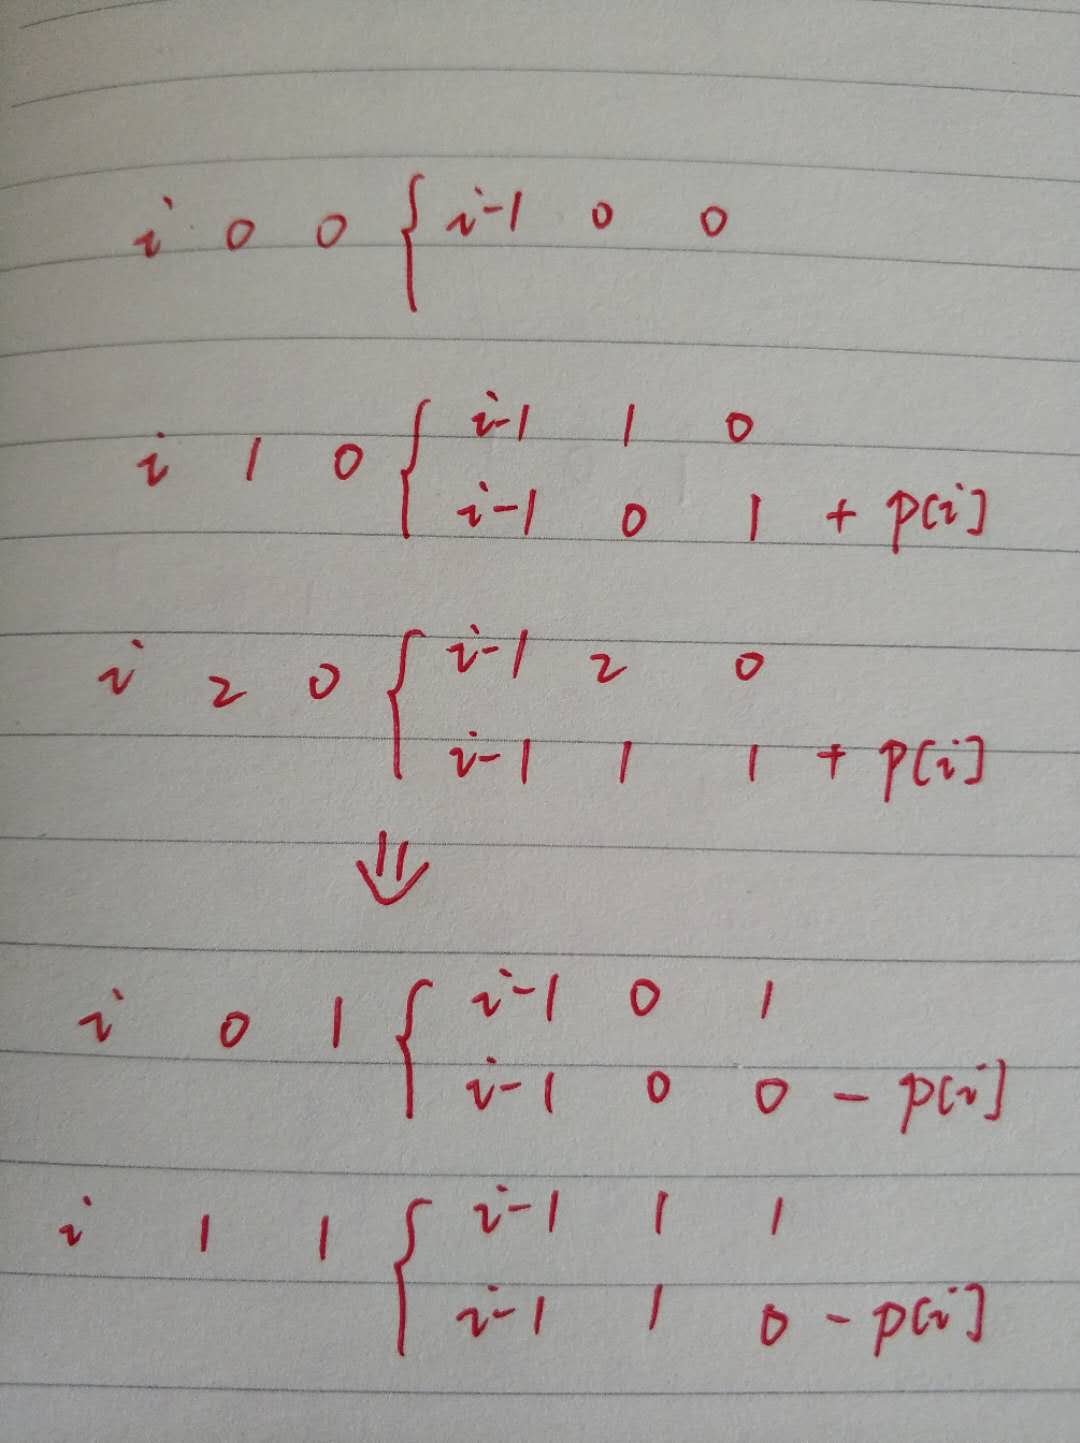 i 0 0 { i-1 0 0
i 1 0 { i-1 1 0
i-1 0 1 + p[i]
i 2 0 { i-1 2 0
i-1 1 1 + p[i]
⇓
i 0 1 { i-1 0 1
i-1 0 0 - p[i]
i 1 1 { i-1 1 1
i-1 1 0 - p[i]